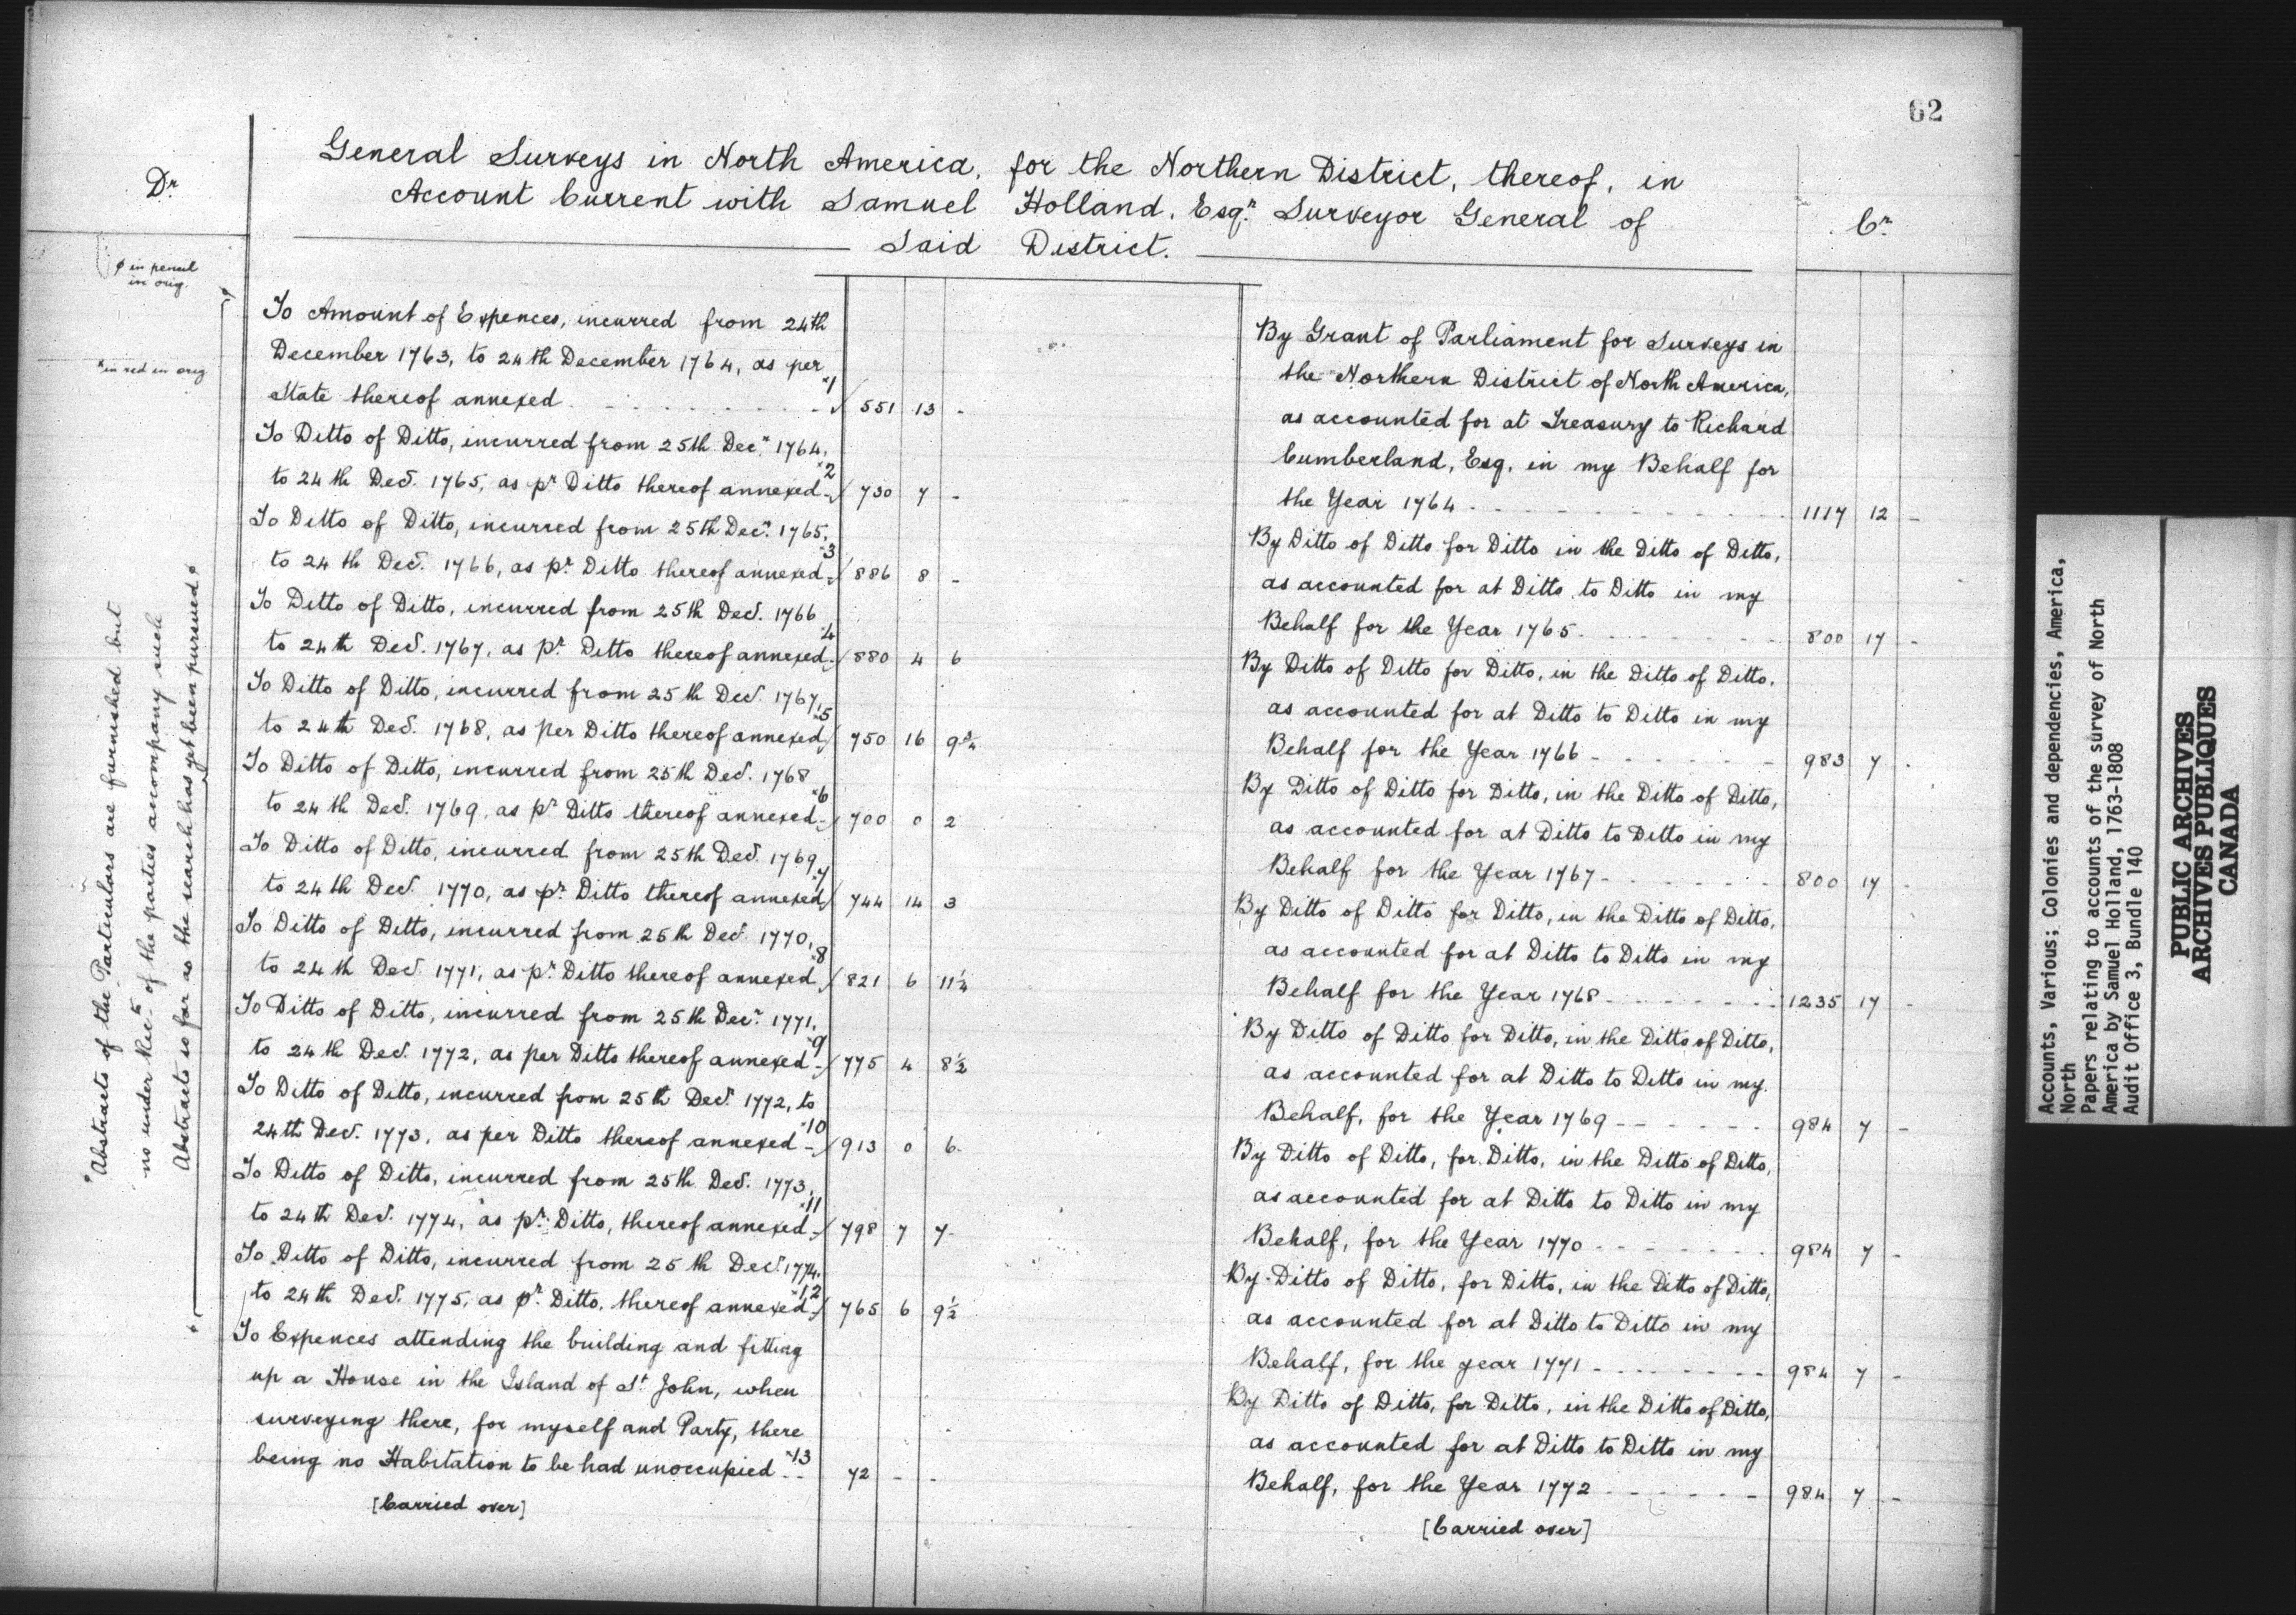 62
Dr
General Surveys in North America, for the Northern District, thereof, in
Account Current with Samuel Holland, Esqr. Surveyor General of
Said District.
Cr
φ in pencil
in orig.
*in red in orig
φ Abstracts of the Particulars are furnished but
no under Rects. of the parties accompany such
Abstracts so far as the search has yet been pursued φ
To Amount of Expences, incurred from 24th
December 1763, to 24th December 1764, as per
State thereof annexed *1 551 13 -
To Ditto of Ditto, incurred from 25th Decr. 1764,
to 24th Decr. 1765, as pr Ditto thereof annexed *2 730 7 -
To Ditto of Ditto, incurred from 25th Decr. 1765,
to 24th Decr. 1766, as pr. Ditto thereof annexed *3 886 8 -
To Ditto of Ditto, incurred from 25th Decr. 1766
to 24th Decr. 1767, as pr. Ditto thereof annexed *4 880 4 6
To Ditto of Ditto, incurred from 25th Decr. 1767,
to 24th Decr. 1768, as per Ditto thereof annexed *5 750 16 9¾
To Ditto of Ditto, incurred from 25th Decr. 1768
to 24th Decr. 1769, as pr Ditto thereof annexed *6 700 0 2
To Ditto of Ditto, incurred from 25th Decr. 1769,
to 24th Decr. 1770, as pr. Ditto thereof annexed *7 744 14 3
To Ditto of Ditto, incurred from 25th Decr. 1770,
to 24th Decr. 1771, as pr. Ditto thereof annexed *8 821 6 11¼
To Ditto of Ditto, incurred from 25th Decr. 1771,
to 24th Decr. 1772, as per Ditto thereof annexed *9 775 4 8½
To Ditto of Ditto, incurred from 25th Decr. 1772, to
24th Decr. 1773, as per Ditto thereof annexed *10 913 0 6
To Ditto of Ditto, incurred from 25th Decr. 1773,
to 24th Decr. 1774, as pr. Ditto, thereof annexed *11 798 7 7
To Ditto of Ditto, incurred from 25th Decr. 1774,
to 24th Decr. 1775, as pr. Ditto, thereof annexed *12 765 6 9½
To Expences attending the building and fitting
up a House in the Island of St John, when
surveying there, for myself and Party, there
being no Habitation to be had unoccupied *13 72 - -
[Carried over]
By Grant of Parliament for Surveys in
the Northern District of North America,
as accounted for at Treasury to Richard
Cumberland, Esq. in my Behalf for
the Year 1764 1117 12 -
By Ditto of Ditto for Ditto in the Ditto of Ditto,
as accounted for at Ditto to Ditto in my
Behalf for the Year 1765 800 17 -
By Ditto of Ditto for Ditto, in the Ditto of Ditto,
as accounted for at Ditto to Ditto in my
Behalf for the Year 1766 983 7 -
By Ditto of Ditto for Ditto, in the Ditto of Ditto,
as accounted for at Ditto to Ditto in my
Behalf for the Year 1767 800 17 -
By Ditto of Ditto for Ditto, in the Ditto of Ditto,
as accounted for at Ditto to Ditto in my
Behalf for the Year 1768 1235 17 -
By Ditto of Ditto for Ditto, in the Ditto of Ditto,
as accounted for at Ditto to Ditto in my
Behalf, for the Year 1769 984 7 -
By Ditto of Ditto, for Ditto, in the Ditto of Ditto,
as accounted for at Ditto to Ditto in my
Behalf, for the Year 1770 984 7 -
By Ditto of Ditto, for Ditto, in the Ditto of Ditto,
as accounted for at Ditto to Ditto in my
Behalf, for the year 1771 984 7 -
By Ditto of Ditto, for Ditto, in the Ditto of Ditto,
as accounted for at Ditto to Ditto in my
Behalf, for the Year 1772 984 7 -
[Carried over]
Accounts, Various; Colonies and dependencies, America,
North
Papers relating to accounts of the survey of North
America by Samuel Holland, 1763-1808
Audit Office 3, Bundle 140
PUBLIC ARCHIVES
ARCHIVES PUBLIQUES
CANADA